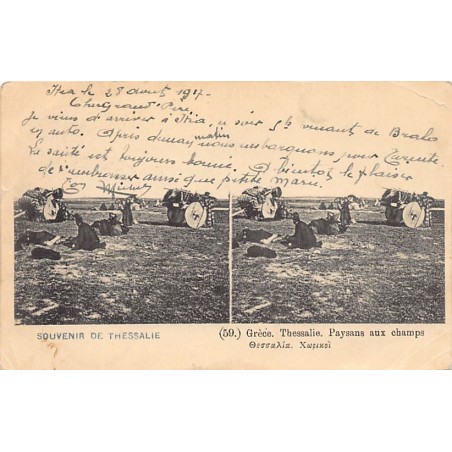 Itéa le 28 août 1917.
Cher Grand' Père,
Je viens d'arriver à Itéa, ce soir 5h venant de Bralo
en auto. Après demain matin nous embarquons pour Tarente.
La santé est toujours bonne. A bientôt le plaisir
de t'embrasser ainsi que petite mère.
SOUVENIR DE THESSALIE
(59.) Grèce. Thessalie. Paysans aux champs
Θεσσαλία. Χωρικοὶ